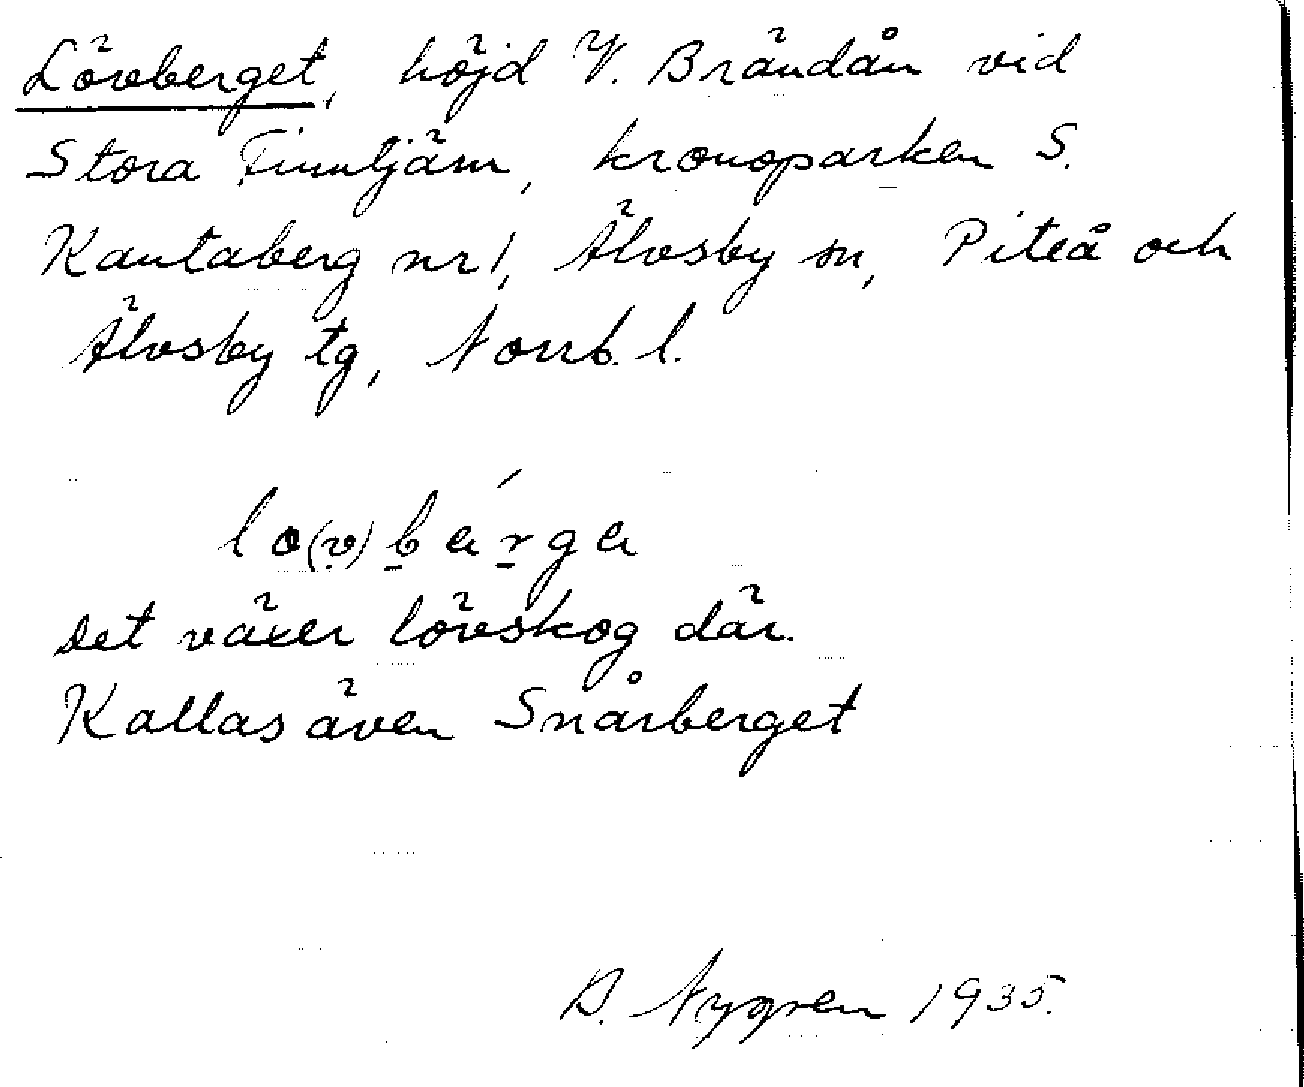 Lövberget, höjd V. Brändån vid
Stora Finntjärn, kronoparken S.
Kantaberg nr 1, Älvsby sn, Piteå och
Älvsby tg, Norrb. l.
lo(v)bárga
Det växer lövskog där.
Kallas även Snårberget
D. Nygren 1935.